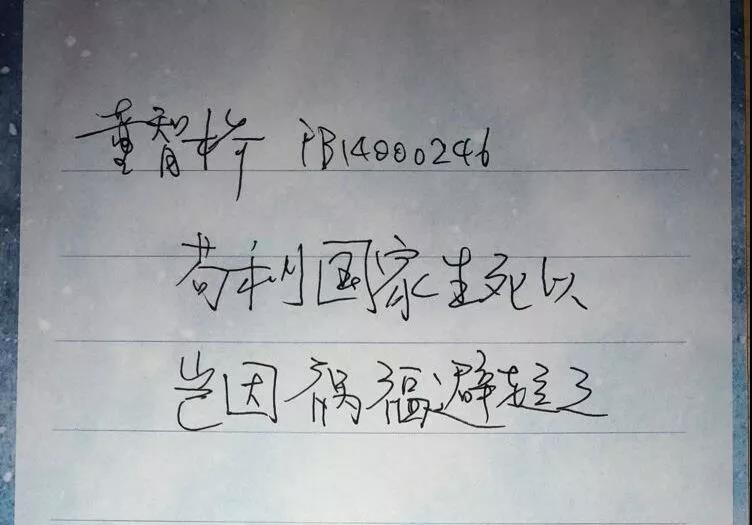 董智 PB14000246
苟利国家生死以
岂因祸福避趋之